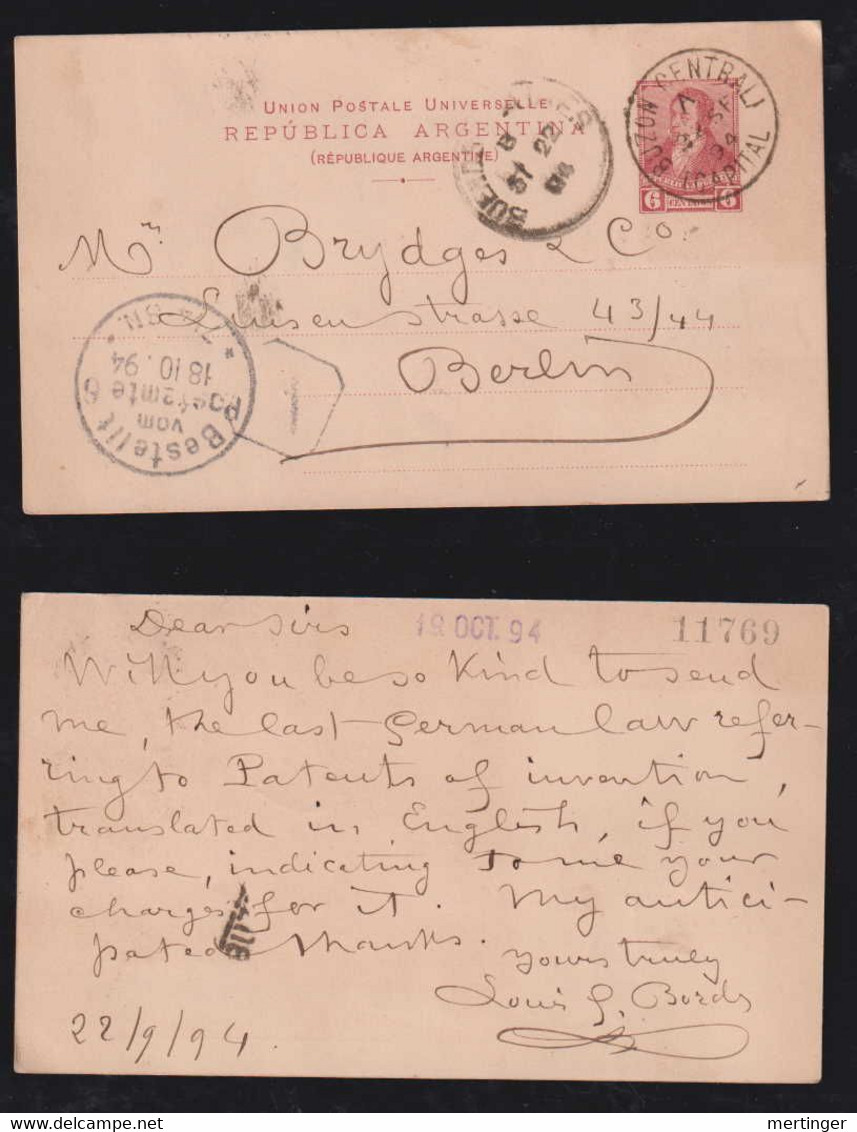 UNION POSTALE UNIVERSELLE
REPÚBLICA ARGENTINA
(RÉPUBLIQUE ARGENTINE)
BUZON CENTRAL
(CAPITAL)
94
6 6
BUENOS
22
Mrs. Brydges & Co.
Luisenstrasse 43/44
Berlin
Bestellt
vom
Postamte 6
18 10. 94
Dear Sirs
19. OCT. 94
11769
Will you be so kind to send
me, the last German law refer-
ring to Patents of invention,
translated in English, if you
please, indicating to me your
charges for it. My antici-
pated thanks.
yours truly
Louis G. Bords
22/9/94
mertinger